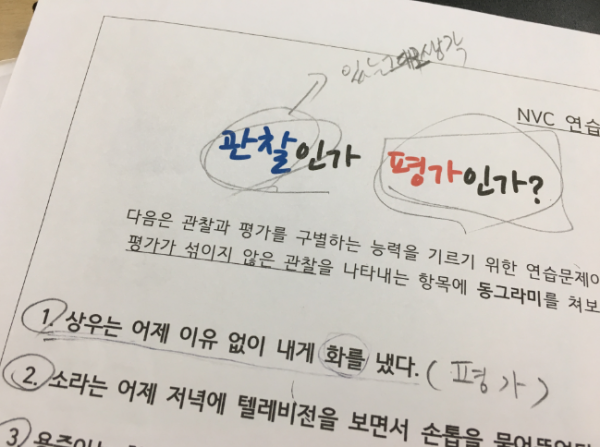 있는그대로생각
NVC 연습
관찰인가 평가인가?
다음은 관찰과 평가를 구별하는 능력을 기르기 위한 연습문제이
평가가 섞이지 않은 관찰을 나타내는 항목에 동그라미를 쳐보
1. 상우는 어제 이유 없이 내게 화를 냈다. (평가)
2. 소라는 어제 저녁에 텔레비전을 보면서 손톱을 물어뜯었다
3